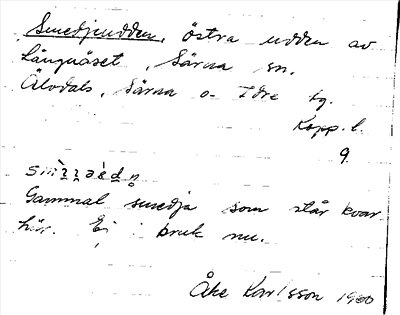 Smedjeudden, östra udden av
Långnäset, Särna sn.
Älvdals, Särna o. Idre tg.
Kopp. l.
9
Gammal smedja som står kvar
här. Ej i bruk nu.
Åke Karlsson 1930